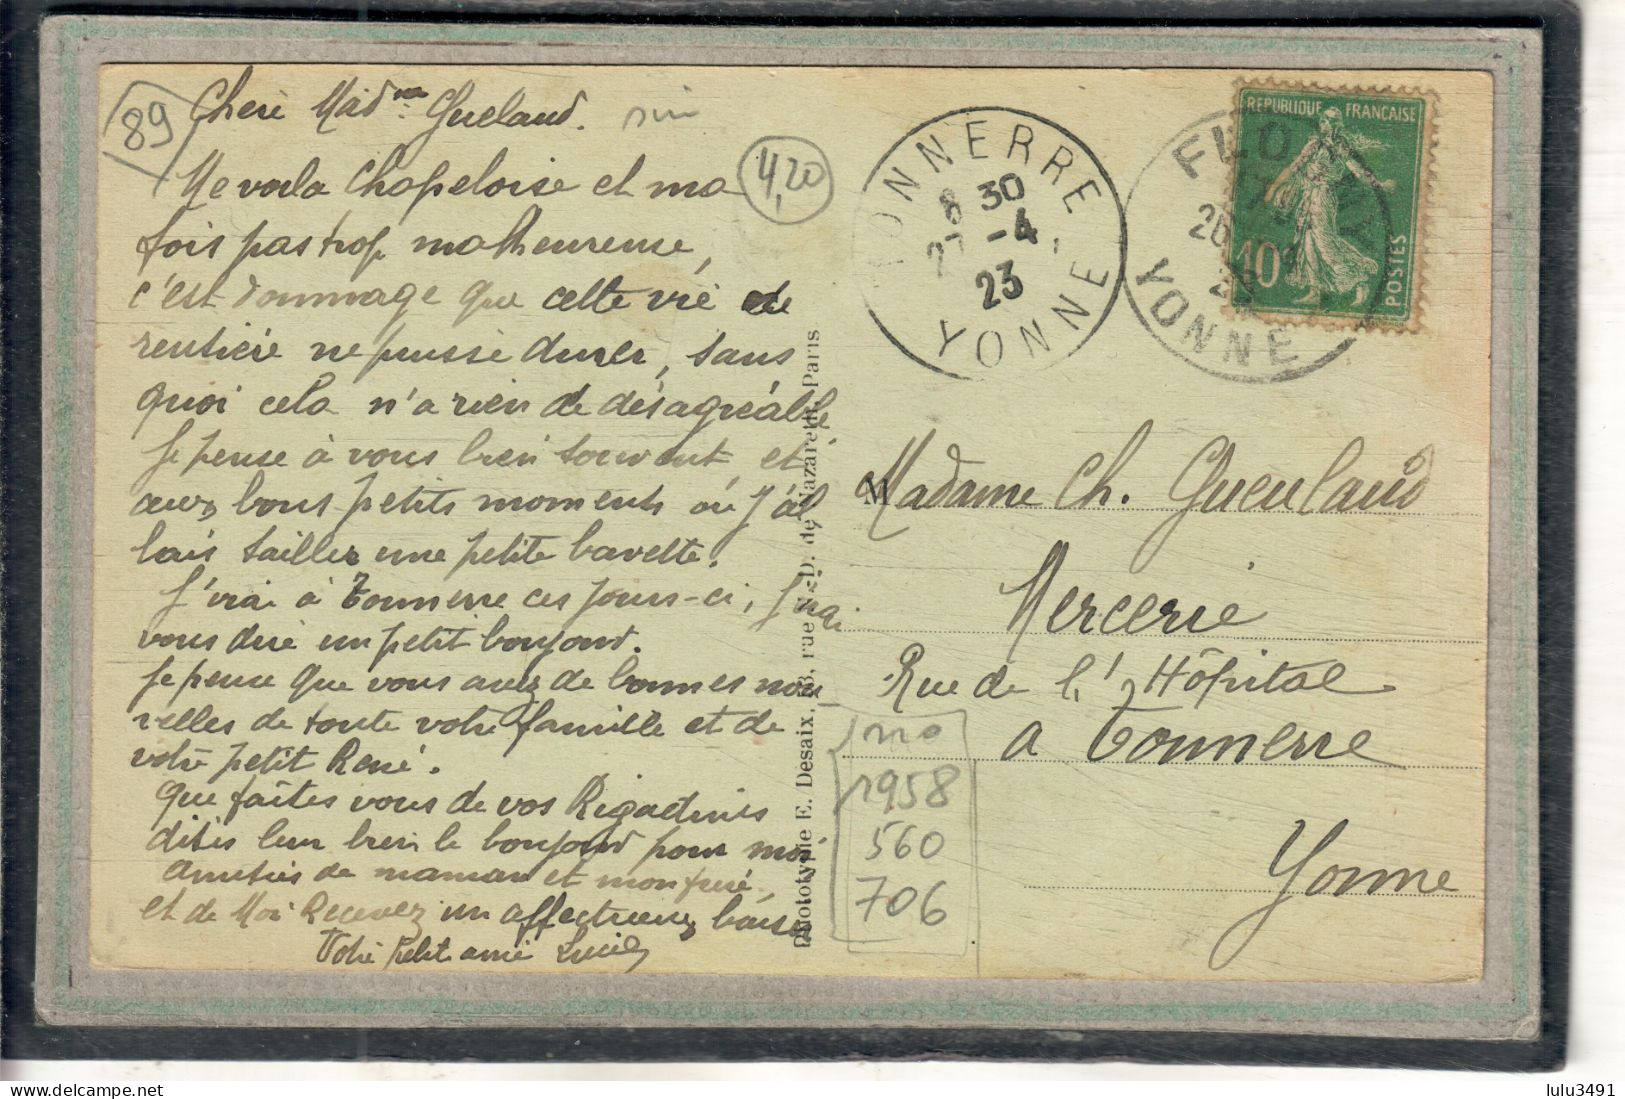 89
Cherè Mad^me Gueulaud.
4,20
Me voila Chapeloise et ma
fois pas trop malheureuse,
c'est dommage que cette vie de
rentière ne puisse durer, sans
quoi cela n'a rien de désagréable
Je pense à vous bien souvent et
aux bons petits moments où j'al
lais tailler une petite bavette.
J'irai à Tonnerre ces jours-ci, j'irai
vous dire un petit bonjour.
Je pense que vous avez de bonnes nou
velles de toute votre famille et de
votre petit René.
Que faites vous de vos Rigadinis
dites leur bien le bonjour pour moi
Amitiés de maman et mon père,
et de Moi Recevez un affectueux baiser
Votre petit amie Lucie
Phototypie E. Desaix, 13, rue N.-D. de Nazareth, Paris
TONNERRE
8 30
27 -4
23
YONNE
FLOGNY
26
YONNE
REPUBLIQUE FRANÇAISE
10c
POSTES
M
Madame Ch. Gueulaud
Mercerie
Rue de l'Hôpital
a Tonnerre
Yonne
1958
560
706
lulu3491